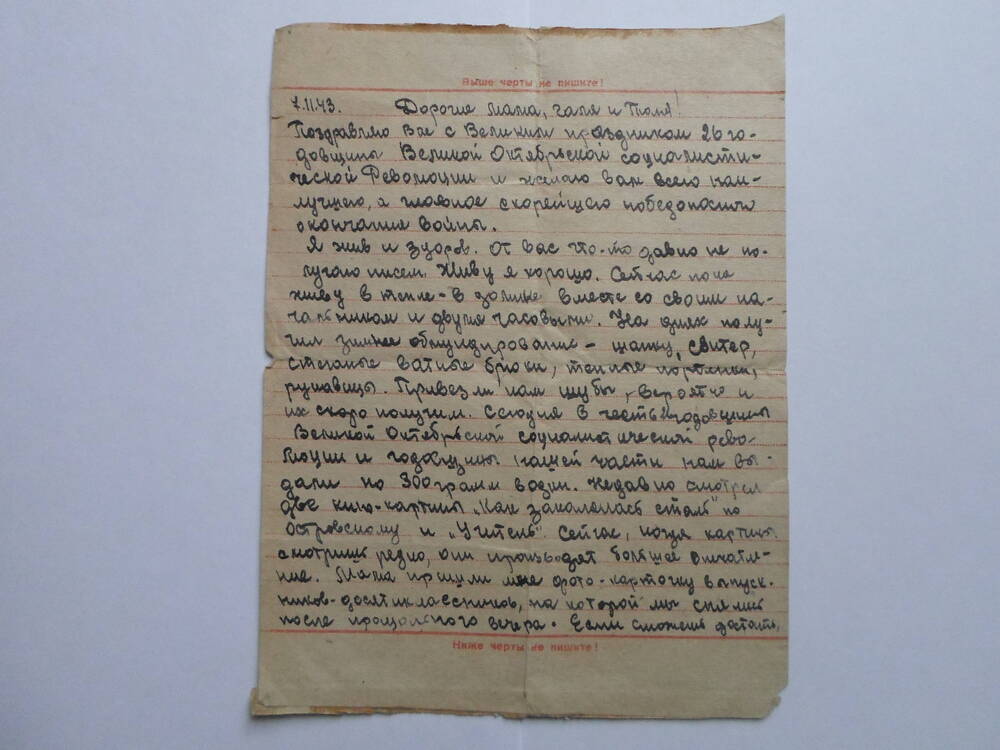 Выше черты не пишите!
7.11.43. Дорогие мама, Галя и Толя!
Поздравляю Вас с Великим праздником 26 го-
довщины Великой Октябрьской социалисти-
ческой Революции и желаю вам всего наи-
лучшего, а главное скорейшего победоносного
окончания войны.
Я жив и здоров. От вас что-то давно не по-
лучаю писем. Живу я хорошо. Сейчас пока
живу в тепле - в домике вместе со своим на-
чальником и двумя часовыми. На днях полу-
чил зимнее обмундирование - шапку, свитер,
стеганые ватные брюки, теплые портянки,
рукавицы. Привезли нам шубы, вероятно и
их скоро получим. Сегодня в честь годовщины
Великой Октябрьской социалистической рево-
люции и годовщины нашей части нам вы-
дали по 300 грамм водки. Недавно смотрел
две кино-картины „Как закалялась сталь" по
Островскому и „Учитель". Сейчас, когда картины
смотришь редко, они производят большое впечатле-
ние. Мама пришли мне фото-карточку выпуск-
ников-десятиклассников, на которой мы снялись
после прощального вечера. Если сможешь достать,
Ниже черты не пишите!